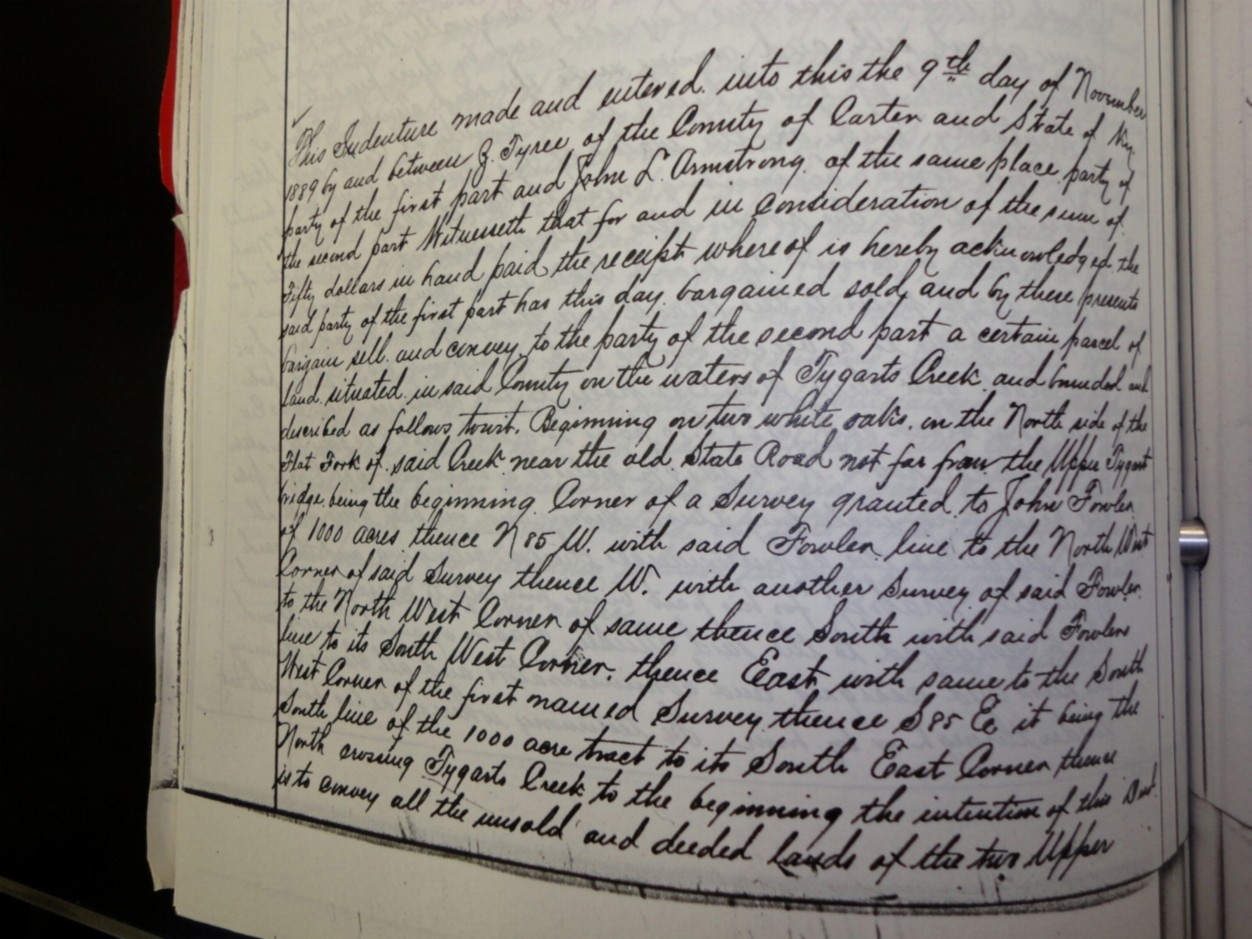 This Indenture made and entered into this the 9th day of November
1889 by and between Z. Tyree of the County of Carter and State of Ky
party of the first part and John L. Armstrong of the same place party of
the second part Witnesseth that for and in consideration of the sum of
Fifty dollars in hand paid the receipt whereof is hereby acknowledged the
said party of the first part has this day bargained sold and by these presents
bargain sell and convey to the party of the second part a certain parcel of
land situated in said County on the waters of Tygarts Creek and bounded and
described as follows towit. Beginning on two white oaks, on the North side of the
Flat Fork of said Creek near the old State Road not far from the Upper Tygart
bridge being the beginning Corner of a Survey granted to John Fowler
of 1000 acres thence N 85 W. with said Fowler line to the North West
Corner of said Survey thence W. with another Survey of said Fowler
to the North West Corner of same thence South with said Fowlers
line to its South West Corner, thence East with same to the South
West Corner of the first named Survey thence S 85 E it being the
South line of the 1000 acre tract to its South East Corner thence
North crossing Tygarts Creek to the beginning the intention of this Deed
is to convey all the unsold and deeded lands of the two Upper